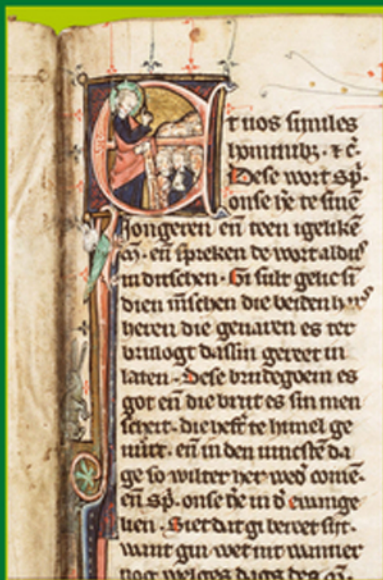 Et uos similes
hominibz . ⁊ c̄.
Dese wort sp̄.
onse h̄e te sinē
Jongeren en̄ teen igelikē
en̄ spreken de wort aldus
in dutschen . Gi sult gelic si
dien m̄schen die beiden hars
heren die geuaren es ter
brulogt dassin gereet in
laten . Dese brudegoem es
got en̄ die brut es sin men
scheit . die heft te himel ge
uūrt . en̄ in den uincstē da
ge so wilter her wed' comē .
en̄ sp̄ . onse h̄e in d' ewange
lien . Siet dat gi bereet sijt .
want gin wet nit wanner
nog welges dags